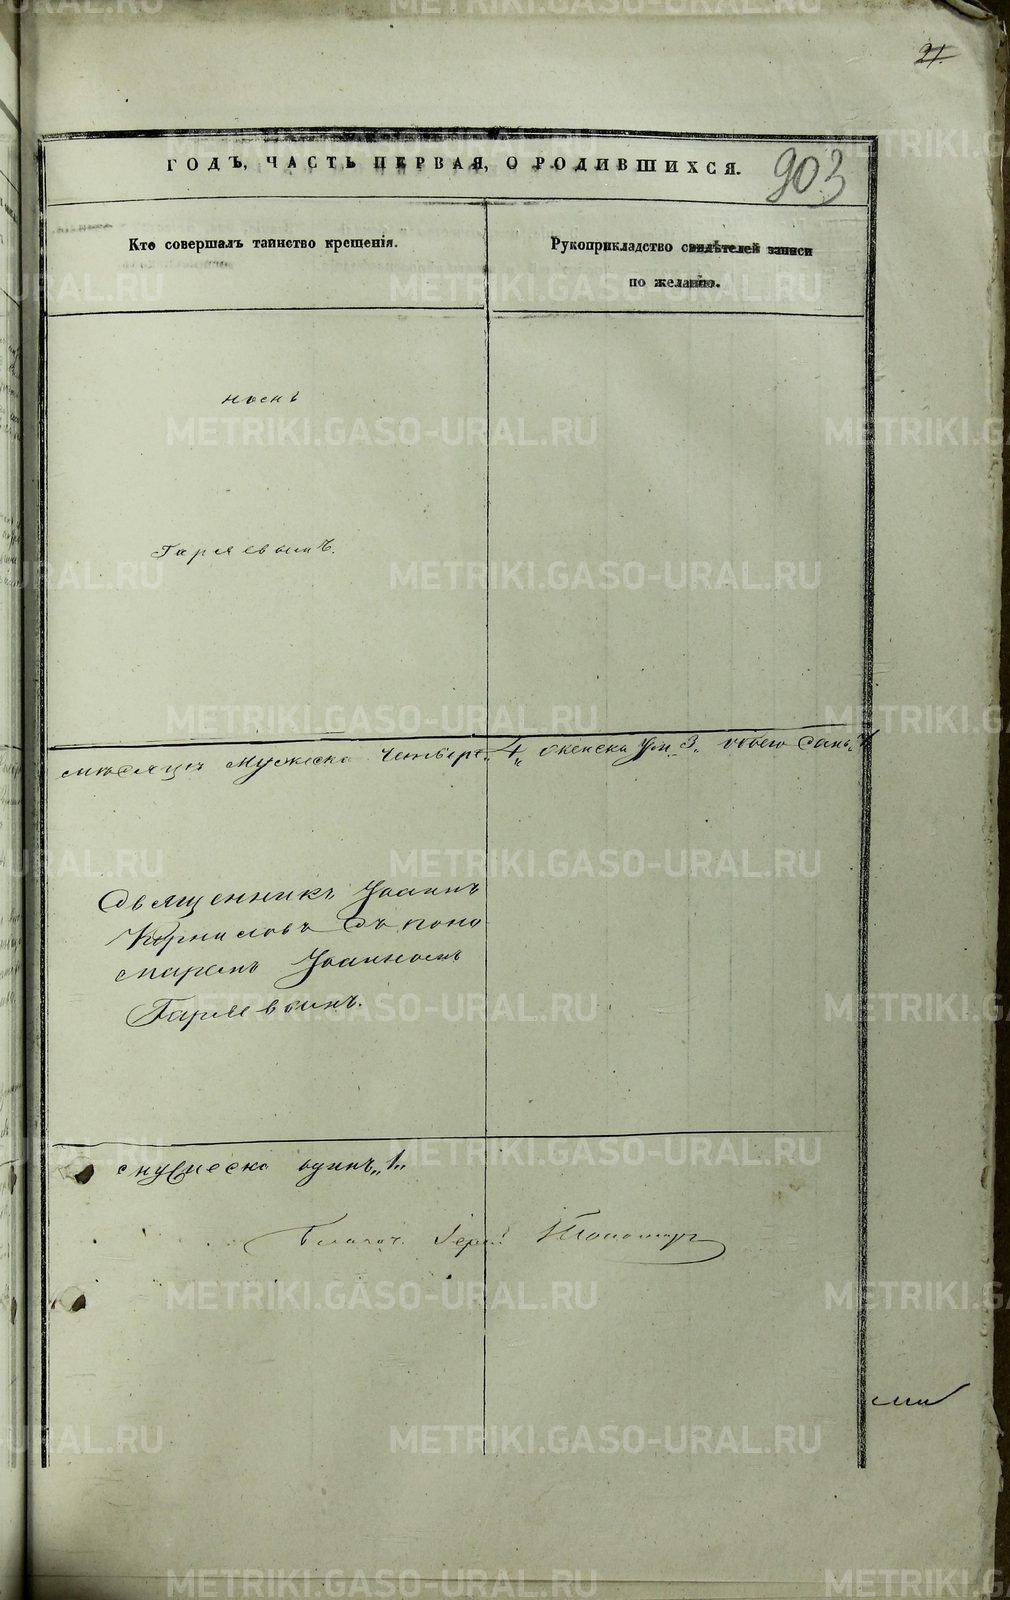 21.
ГОДЪ, ЧАСТЬ ПЕРВАЯ, О РОДИВШИХСЯ.
903
Кто совершалъ таинство крещенія.
Рукоприкладство свидѣтелей записи
по желанію.
номъ
Гаряевымъ.
мѣсяцѣ мужеска четыре „4„ женска 3. обоего
Священникъ Іоаннъ
Корниловъ съ поно
маремъ Іоанномъ
Гаряевымъ.
мужеска одинъ „1„
Благоч. Іерей
METRIKI.GASO-URAL.RU